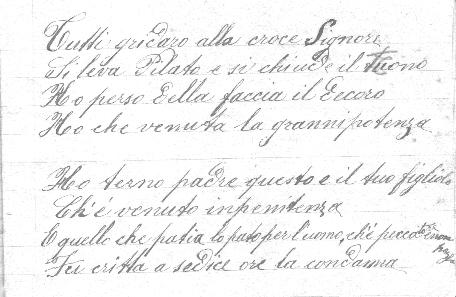 Tutti gridaro alla croce Signore
Si leva Pilato e si chiude il tuono
Ho perso della faccia il decoro
Mo che venuta la grannipotenza
Mo terno padre questo e il tuo figliolo
Ch'é venuto inpenitenza
E quello che patia lo pato per l'uomo, ch'é pecca
Fu critta a sedice ore la condanna